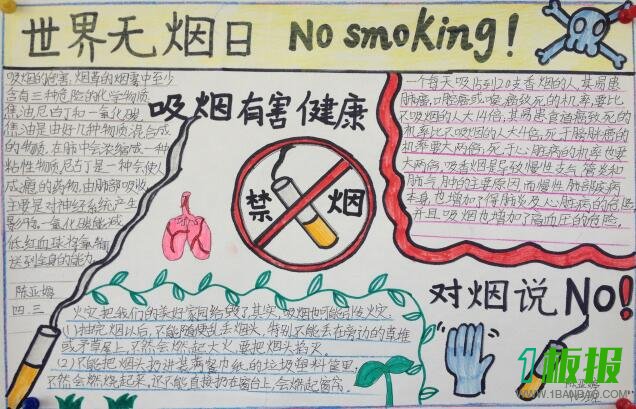 世界无烟日 No smoking!
吸烟的危害,烟草的烟雾中至少
含有三种危险的化学物质
焦油,尼古丁和一氧化碳
焦油是由好几种物质混合成
的物质,在肺中会浓缩成一种
粘性物质,尼古丁是一种会使人
成瘾的药物,由肺部吸收
主要是对神经系统产生
影响。一氧化碳能减
低红血球将氧输
送到全身的能力。
四三
吸烟有害健康
禁烟
一个每天吸15到20支香烟的人,其易患
肺癌,口腔癌或喉癌致死的机率要比
不吸烟的人大14倍;其易患食道癌致死的
机率比不吸烟的人大4倍;死于膀胱癌的
机率要大两倍;死于心脏病的机率也要
大两倍,吸香烟是导致慢性支气管炎和
肺气肿的主要原因,而慢性肺部疾病
本身,也增加了得肺炎及心脏病的危险
并且吸烟也增加了高血压的危险。
火灾把我们的美好家园给毁了其实,吸烟也可能引发火灾.
(1)抽完烟以后,不能随便乱丢烟头,特别不能丢在旁边的草堆
或茅草屋上,不然会燃起大火,要把烟头掐灭。
(2)不能把烟头扔进装着易燃的垃圾塑料筐里,
不然会燃烧起来,还不能直接扔在窗台上,会燃起窗帘。
对烟说NO!
1板报
WWW.1BANBAO.COM